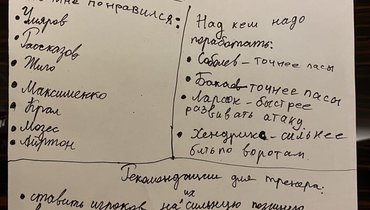 мне понравился:
• Умяров
• Гаосказов
• Жиго
• Максименко
• Крал
• Мозес
• Айртон
Над кем надо
поработать:
• Соболев – точнее пасы
• Бакаев – точнее пасы
• Ларсон – быстрее
развивать атаку
• Хендрикс – сильнее
бить по воротам
Рекомендации для тренера:
• ставить игроков на их сильную позицию